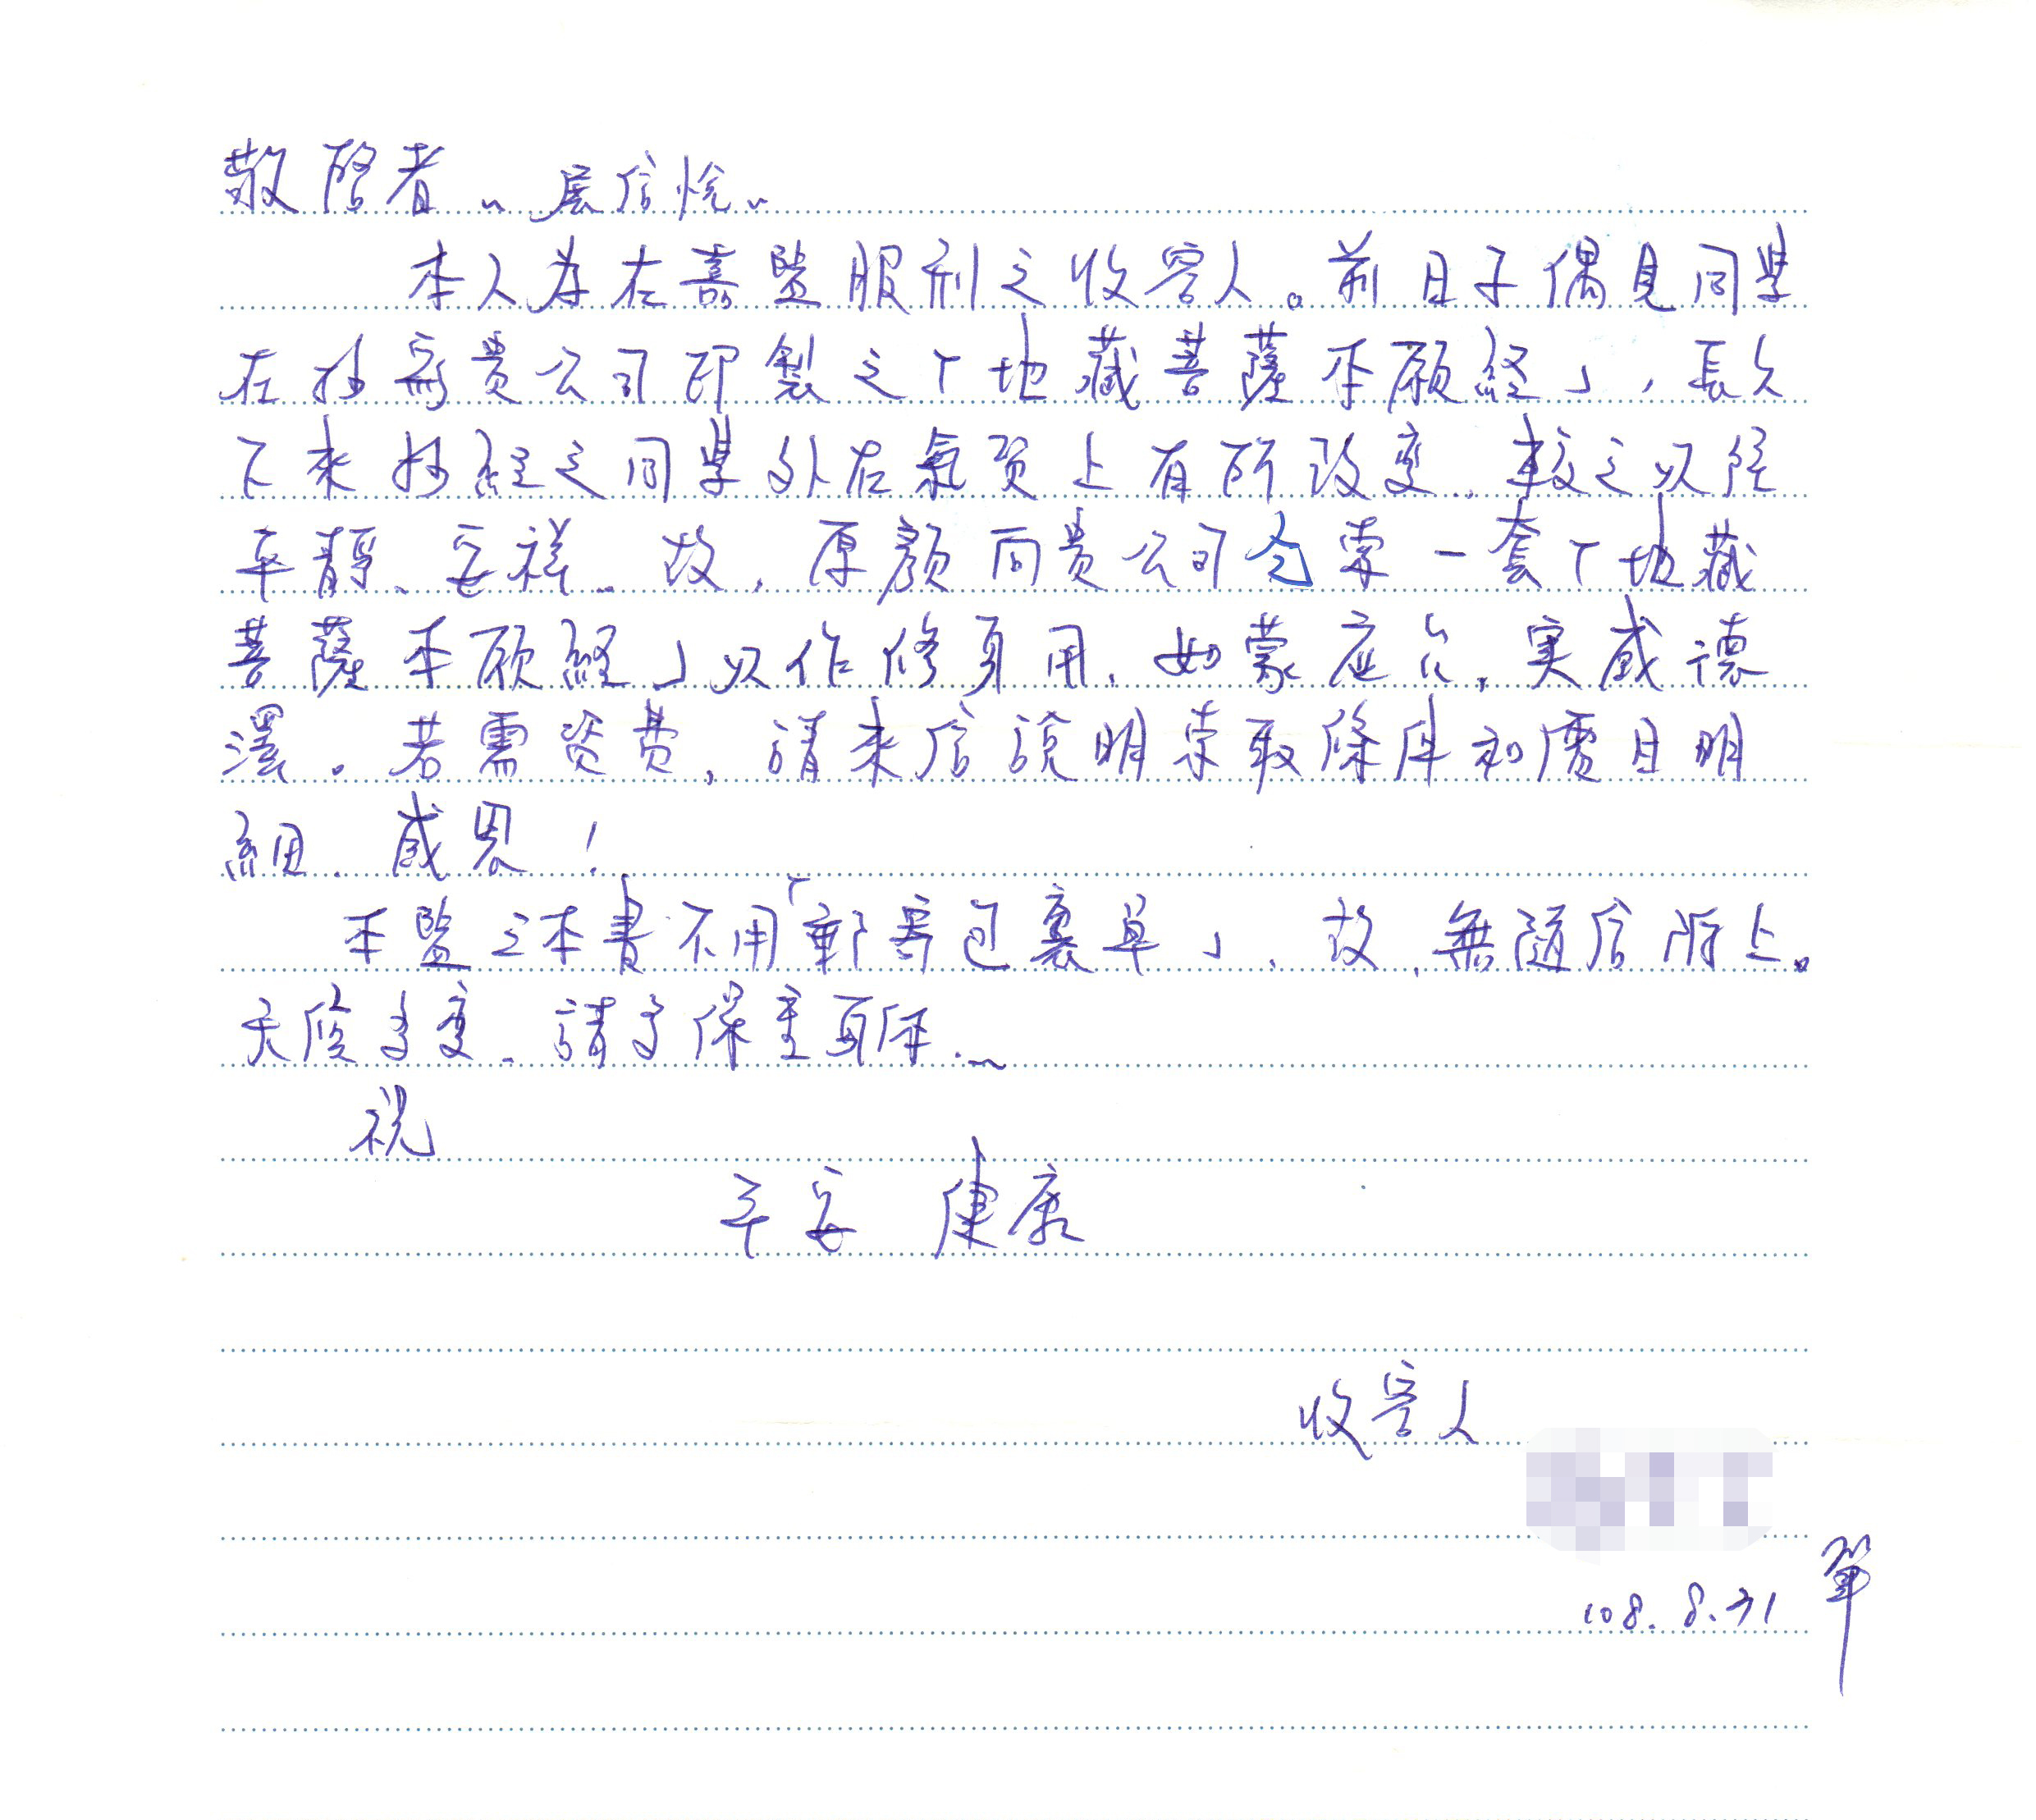 敬啓者、展信悅、
本人為在嘉監服刑之收容人。前日子偶見同學
在抄寫貴公司印製之「地藏菩薩本願經」，長久
下來抄經之同學外在氣質上有所改變、較之以往
平靜、安祥。故，厚顏向貴公司乞索一套「地藏
菩薩本願經」以作修身用，如蒙應允，实感德
澤。若需資費，請來信說明索取條件和價目明
細、感恩！
本監之本書不用「郵寄包裹單」、故，無隨信附上。
天候多變、請予保重身体…
祝
平安 健康
收容人
108.8.31
筆